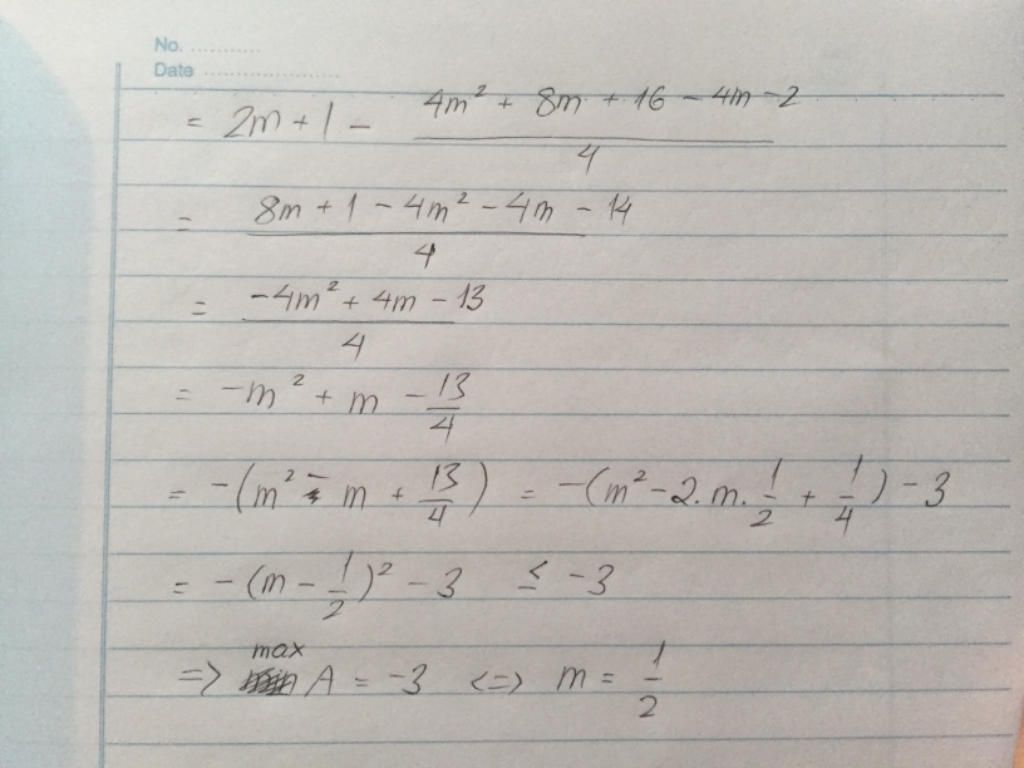 No. ............
Date ........................
= 2m + 1 - \frac{4m² + 8m + 16 - 4m - 2}{4}
= \frac{8m + 1 - 4m² - 4m - 14}{4}
= \frac{-4m² + 4m - 13}{4}
= -m² + m - \frac{13}{4}
= -(m² - m + \frac{13}{4}) = -(m² - 2.m.\frac{1}{2} + \frac{1}{4}) - 3
= -(m - \frac{1}{2})² - 3 ≤ -3
=> max A = -3 <=> m = \frac{1}{2}